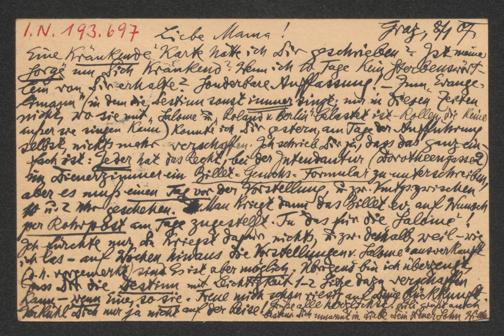 I.N. 193.697
Liebe Mama! Graz, 8/1 07.
Eine Kränkende Karte hätte ich Dir geschrieben? Ist meine
Sorge um Dich Kränkend? Wenn ich 10 Tage Kein Sterbenswört-
lein von Dir erhalte? Sonderbare Auffassung. – Zum "Evange-
limann" in dem die Destinn sonst immer singt, nur in diesen Zeiten
nicht, wo sie mit "Salome" u. "Roland v. Berlin" belastet ist – Rollen, die keine
außer sie singen kann) konnte ich Dir gestern, am Tage der Aufführung
selbst, nicht mehr verschaffen. Ich schrieb Dir ja, dass das ganz ein-
fach ist: Jeder hat das Recht, bei der Intendantur (Dorotheengasse 2)
im Dienerzimmer ein Billet-Gesuchs-Formular zu unterschreiben,
aber es muß einen Tag vor der Vorstellung, u. zw. zwischen
u. 2 Uhr geschehen. Man kriegt dann das Billet ev. auf Wunsch
per Rohrpost am Tage zugestellt. Tu das für die Salome!
Ich fürchte nur, Du kriegst dafür nichts, u. zw. deshalb, weil – wie
ich las – auf Wochen hinaus die Vorstellungen v. Salome ausverkauft
(d. h. vorgemerkt) sind. Es ist aber möglich. Übrigens bin ich überzeugt,
dass Dir die Destinn mit Leichtigkeit 1–2 Sitze dazu verschaffen
kann – wenn Eine, so sie. – Freue mich schon riesig auf Deine Rückkunft.
Verkühl Dich nur ja nicht auf der Reise!